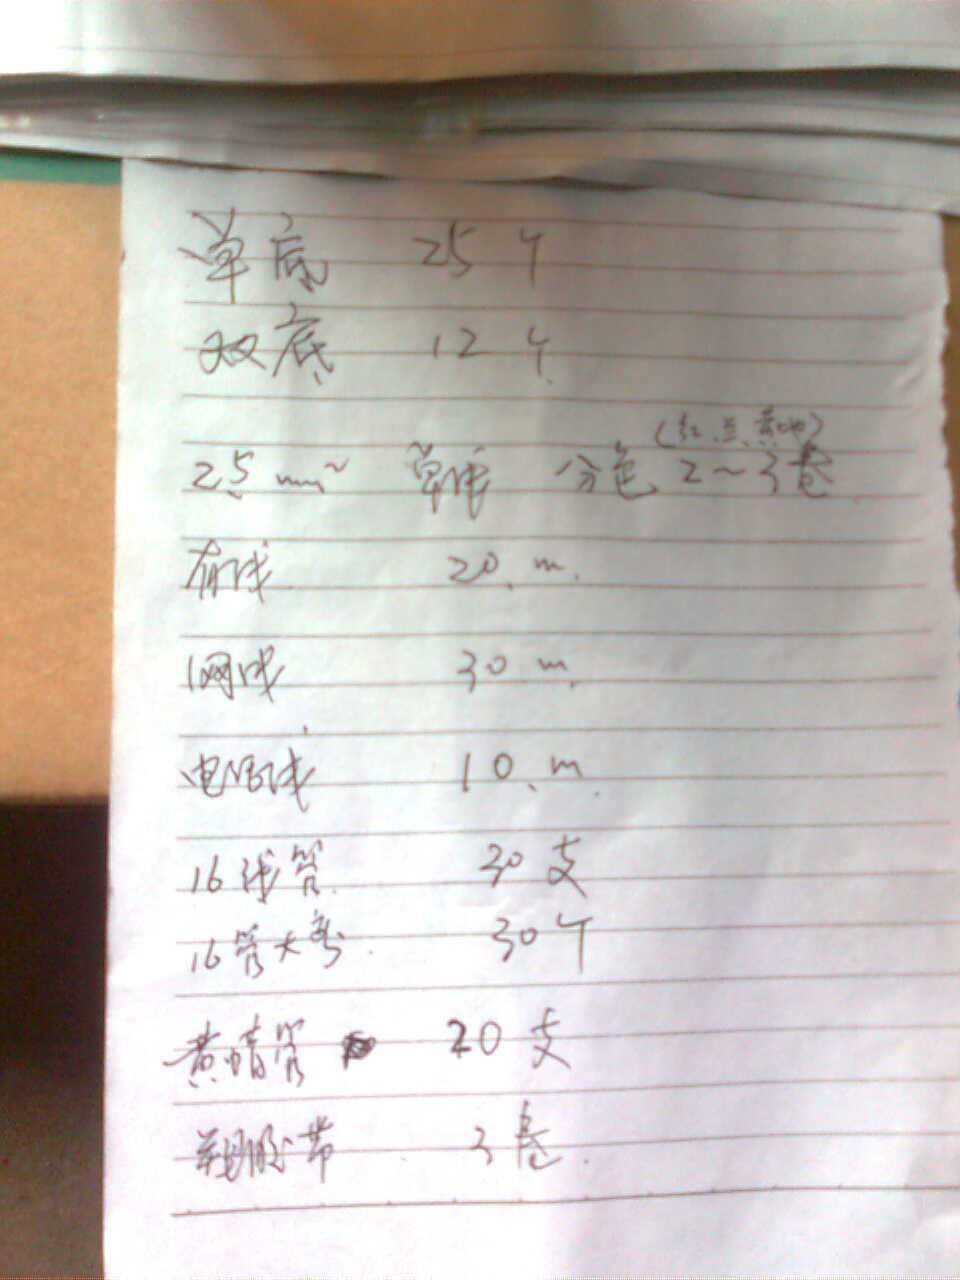 单底 25个
双底 12个
(红.兰.黄
2.5 mm² 单线 分色 2~3卷
有线 20.m.
网线 30 m.
电话线 10.m.
16线管 30支
16管大 30个
黄蜡管 20支
胶带 3卷.